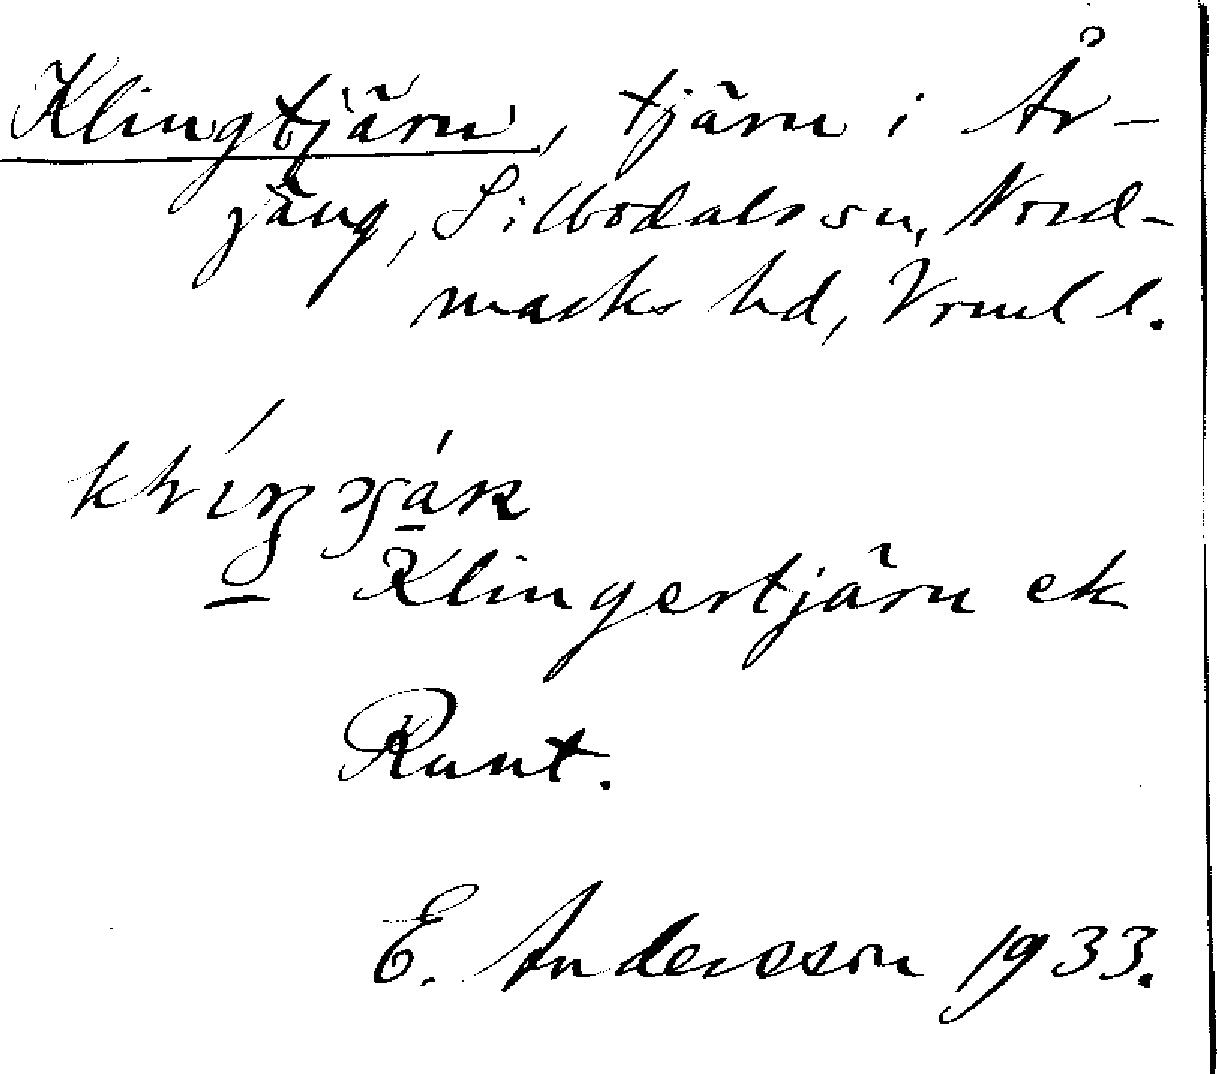 Klingtjärn, tjärn i År-
jäng, Sillbodals sn, Nord-
marks hd, Vrml l.
Klingertjärn ek
Rant.
E. Andersson 1933.